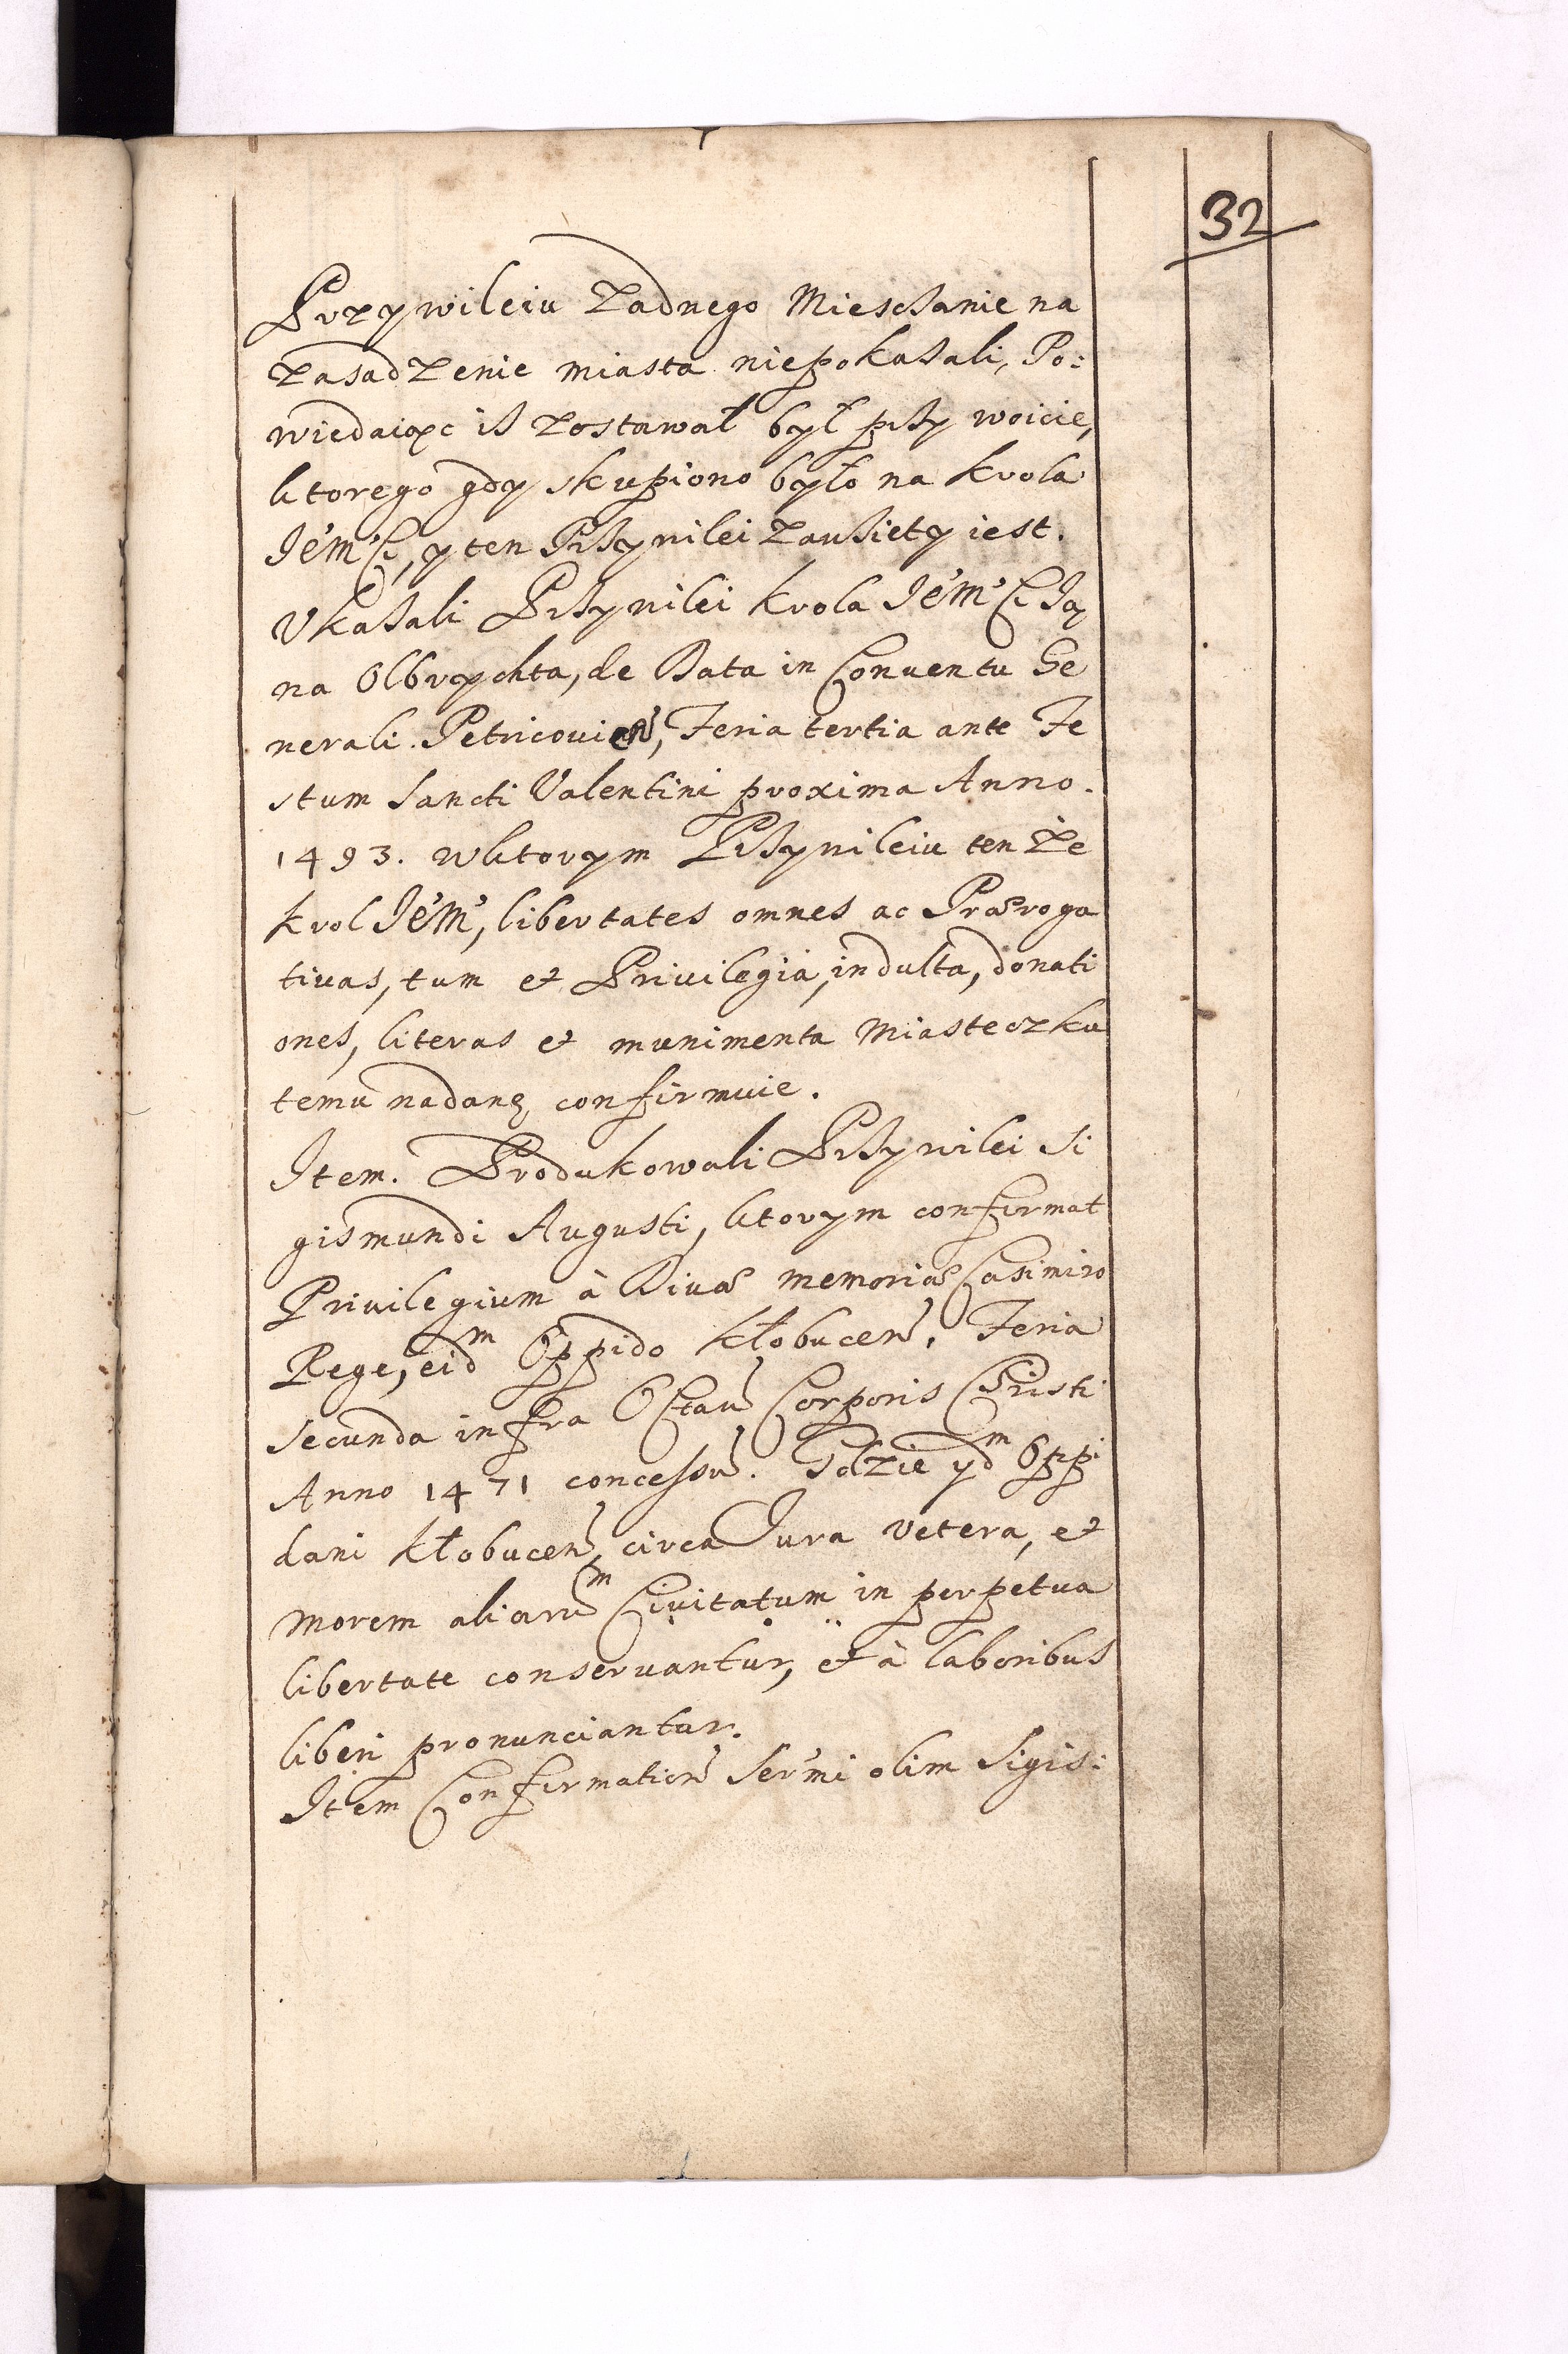 32
Przywileiu Zadnego Miesczanie na
Zasadzenie miasta niepokazali, Po:
wiedaiąc iż zostawał był przy woicie,
ktorego gdy skupiono było na krola
Je'm'Ci, y ten Przywilei zawzięty iest.
Vkazali Przywilei krola Je'm'Ci Ja
na Olbrychta, de Data in Conuentu Ge
nerali Petricouien, Feria tertia ante Fe
stum Sancti Valentini proxima Anno.
1493. w ktorym Przywileiu ten że
krol Je'm', libertates omnes ac Præroga
tiuas, tum et Priuilegia, indulta, donati
ones, literas et munimenta Miasteczku
temu nadane, confirmuie.
Item. Produkowali Przywilei Si
gismundi Augusti, ktorym confirmat
Priuilegium à Diuæ memoriæ Casimiro
Rege, eidm Oppido Kłobucen, Feria
secunda infra Octau Corporis Christi
Anno 1471 concessu. Gdzie ydm Oppi
dani Kłobucen, circa Jura vetera, et
morem aliarum Ciuitatum in perpetua
libertate conseruantur, et à laboribus
liberi pronunciantur.
Item Confirmation Ser'mi olim Sigis: